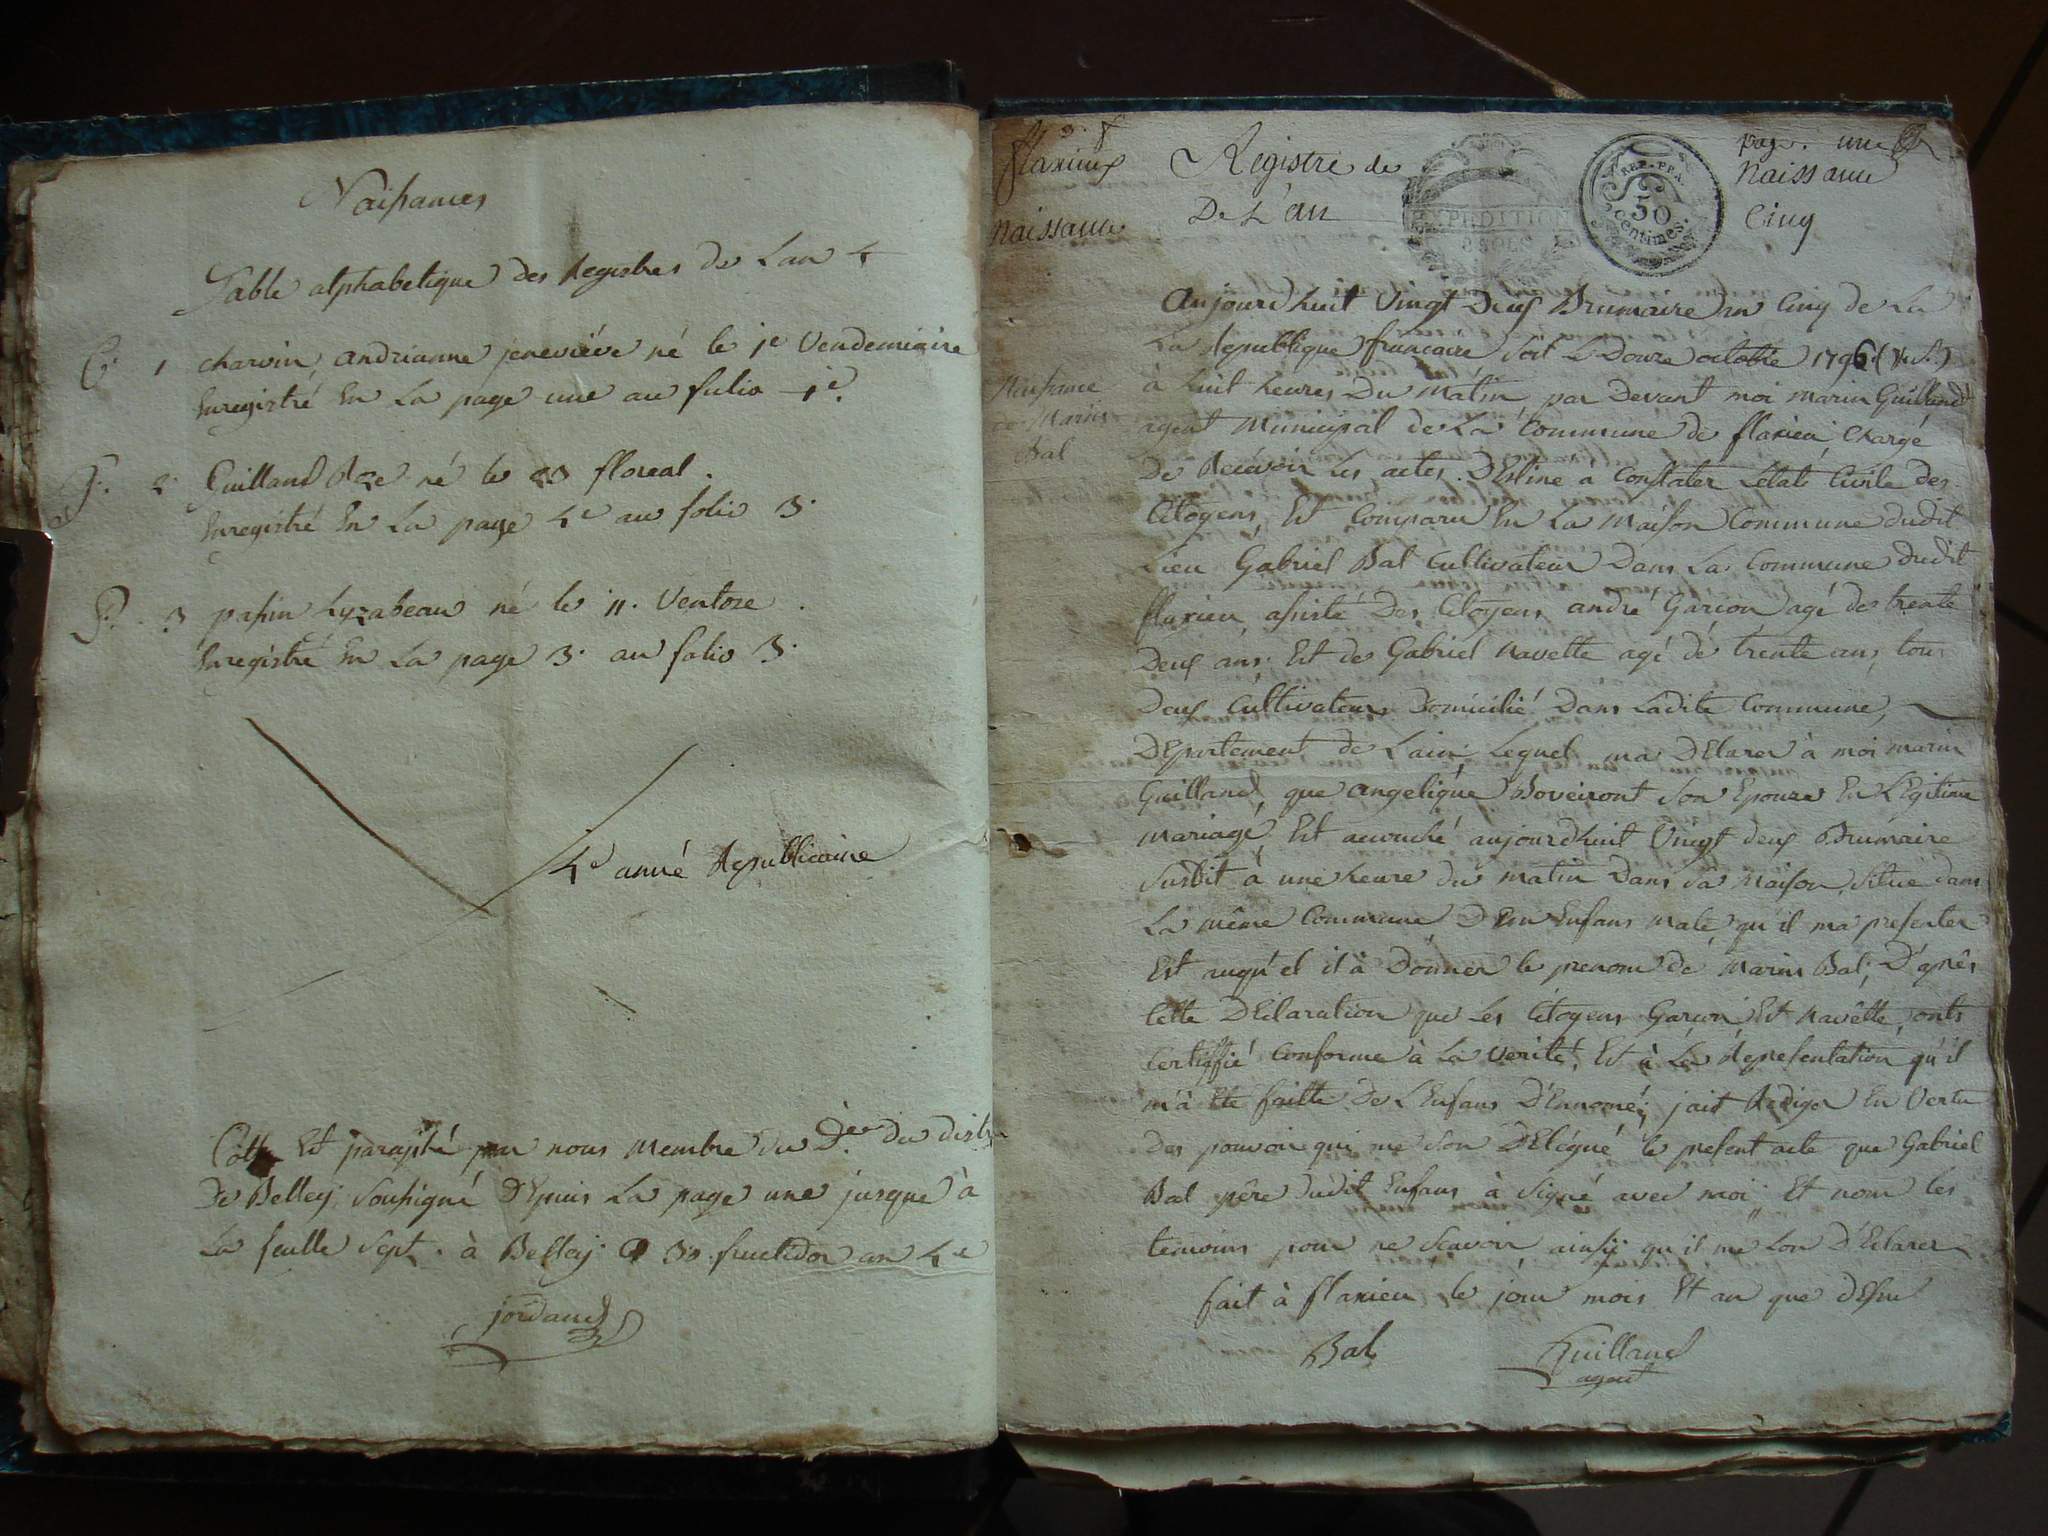 Naissances
Table alphabetique des Registres de Lan 4
C. 1 charvin, andrianne jeneviéve né le 1e Vendemiaire
Enregistré En La page une au folio 1e.
G. 2. Guilland né le 23 floreal.
Enregistré En La page 4e au folio 3.
P. 3 pasin Lyzabeau né le 11. Ventose.
Enregistré En La page 3. au folio 3.
4e anné Republicaine
Cotté Et paraphé par nous Membre du Dre du distr
De Belley soussigné Depuis La page une jusque à
La feulle Sept. à Belley 30 fructidor an 4e
jordan
flaxieux
Registre de
page. une
Naissance
Naissance
De L'an
Cinq
EXPEDITION
8 SOLS
REP. FRA.
50
centimes.
Naissance
de Marin
Bal
Aujourdhuit Vingt Deux Brumaire an Cinq de La
La Republique francaise soit Le Douze octobre 1796 (V.S.)
à huit heures Du Matin, par Devant moi marin Guilland
agent Municipal de La Commune de flaxieu Chargé
De Recevoir Les actes DEstiné à Constater Létat Civile des
Citoyens, Est Comparu En La Maison Commune dudit
Lieu Gabriel Bal Cultivateur Dans La Commune dudit
flaxieu, assisté Des Citoyens andré Garçon agé de trente
Deux ans, Est de Gabriel Navette agé de trente ans, tous
Deux Cultivateurs Domicilié Dans Ladite Commune,
DEpartement de Lain, Lequel ma DEclarer à moi marin
Guilland, que angelique Boveiront son Epouze En LEgitime
mariage, Est accouché aujourdhuit Vingt deux Brumaire
Susdit à une heure du matin Dans sa Maison, située dans
La même Commune, D'un Enfans male, qu'il ma presenter
Est auqu'el il à Donner le prenom de Marin Bal, D'après
Cette DEclaration que Les Citoyens Garçon, Est Navêtte, onts
Certiffié Conforme à La Verité, Et à La Representation qu'il
m'à Eté faitte De L'Enfans D'Ennomé, jait Rediger En Vertu
Des pouvoir qui me Son DElégué le present acte que Gabriel
Bal père dudit Enfans à Signé avec moi, Et nom les
temoins pour ne Scavoir ainsy qu'il me Lon D'Eclarer
fait à flaxieu le jour mois Et an que dEssu
Bal Guilland
agent